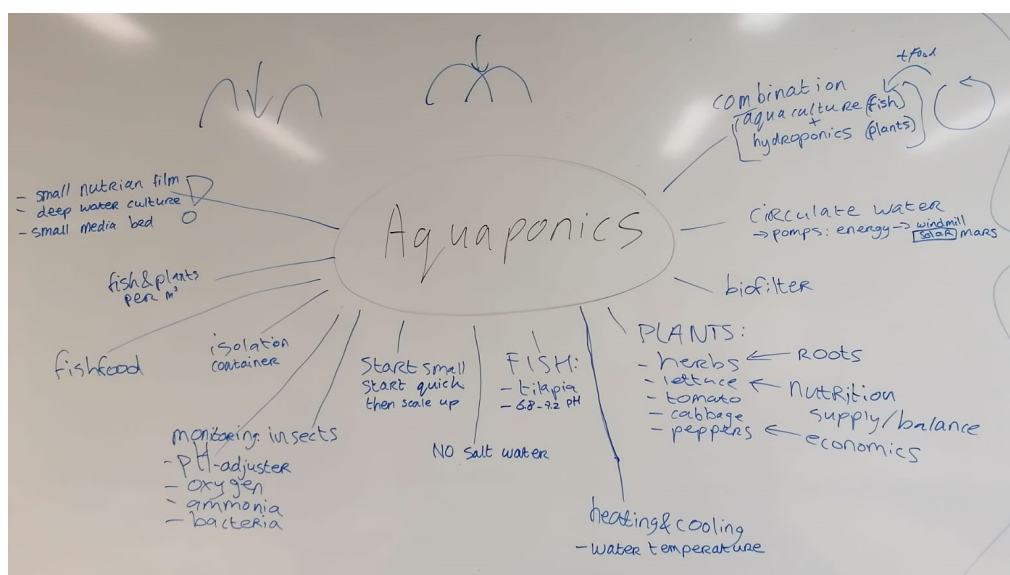 Aquaponics
combination
aquaculture (fish)
+
hydroponics (plants)
+food
circulate water
→ pomps: energy → windmill
solar mars
biofilter
PLANTS:
- herbs ← Roots
- lettuce ← Nutrition
- tomato supply/balance
- cabbage
- peppers ← economics
heating & cooling
- water temperature
FISH:
- tilapia
- 6.8-7.2 pH
NO salt water
Start small
start quick
then scale up
monitoring insects
- pH-adjuster
- oxygen
- ammonia
- bacteria
isolation
container
fishfood
fish & plants
per m³
- small nutrian film
- deep water culture
- small media bed